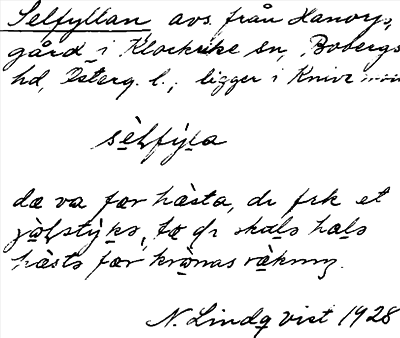 Selfyllan avs. från Hanorp,
gård i Klockrike sn, Bobergs
hd, Österg. l.; ligger i
sèlfỳla
dæ va fær hæsta, di fek et
to di skuls hæls
hæsts fær krònas ræknıŋ.
N. Lindqvist 1928